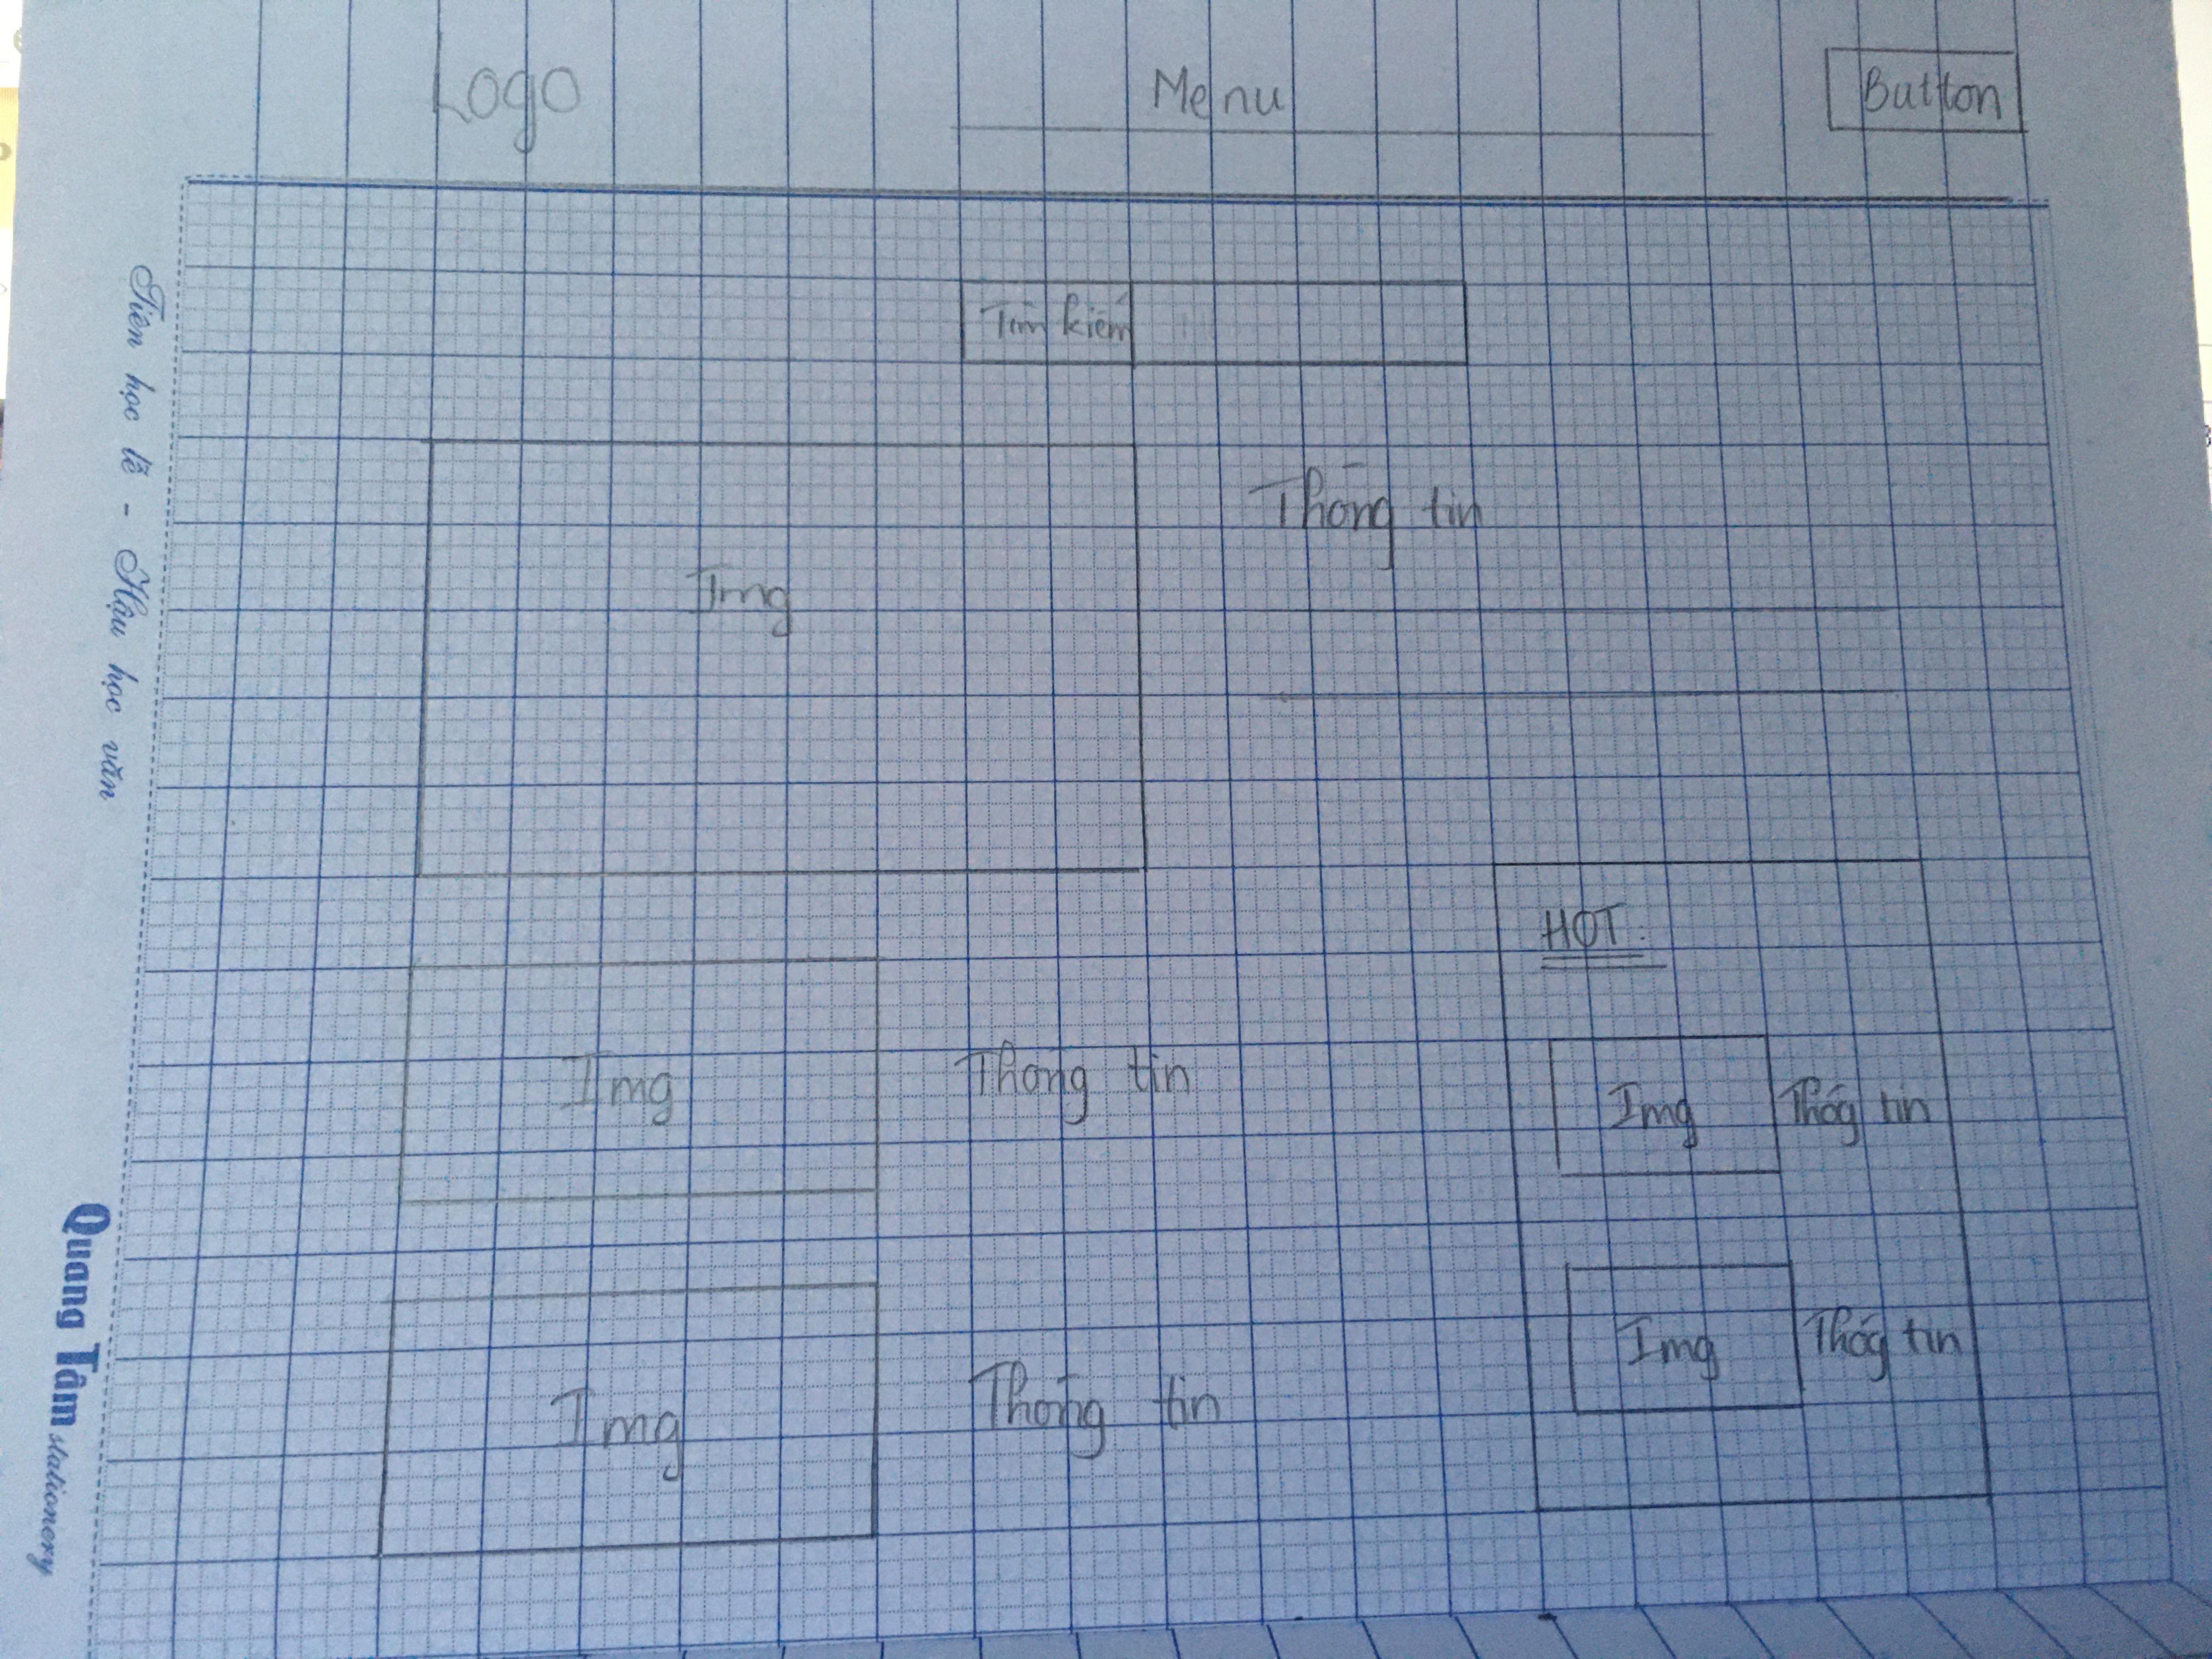 Logo Menu Button
Tìm kiếm
Thông tin
Img
HOT:
Img Thông tin
Img Thôg tin
Img Thôg tin
Img Thông tin
Tiên học lễ - Hậu học văn
Quang Tâm stationery